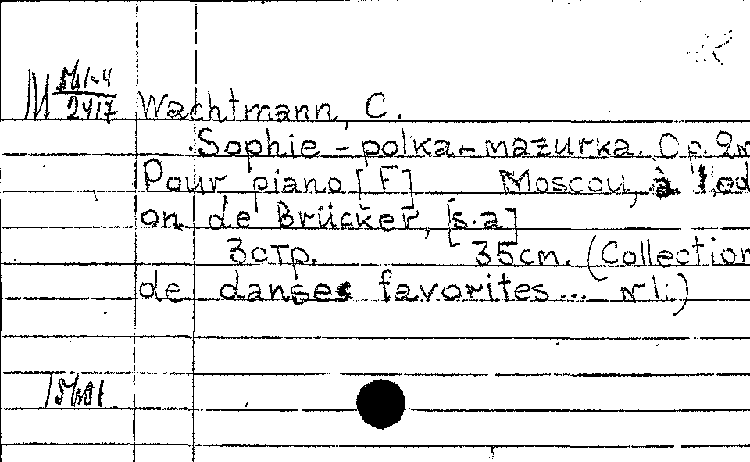 M
2417 Wachtmann, C.
Sophie - polka-mazurka. Op.
Pour piano [F] Moscou, à l'ed
on de Brücker, [s.a]
3стр. 35cm. (Collection
de danses favorites... №1.)